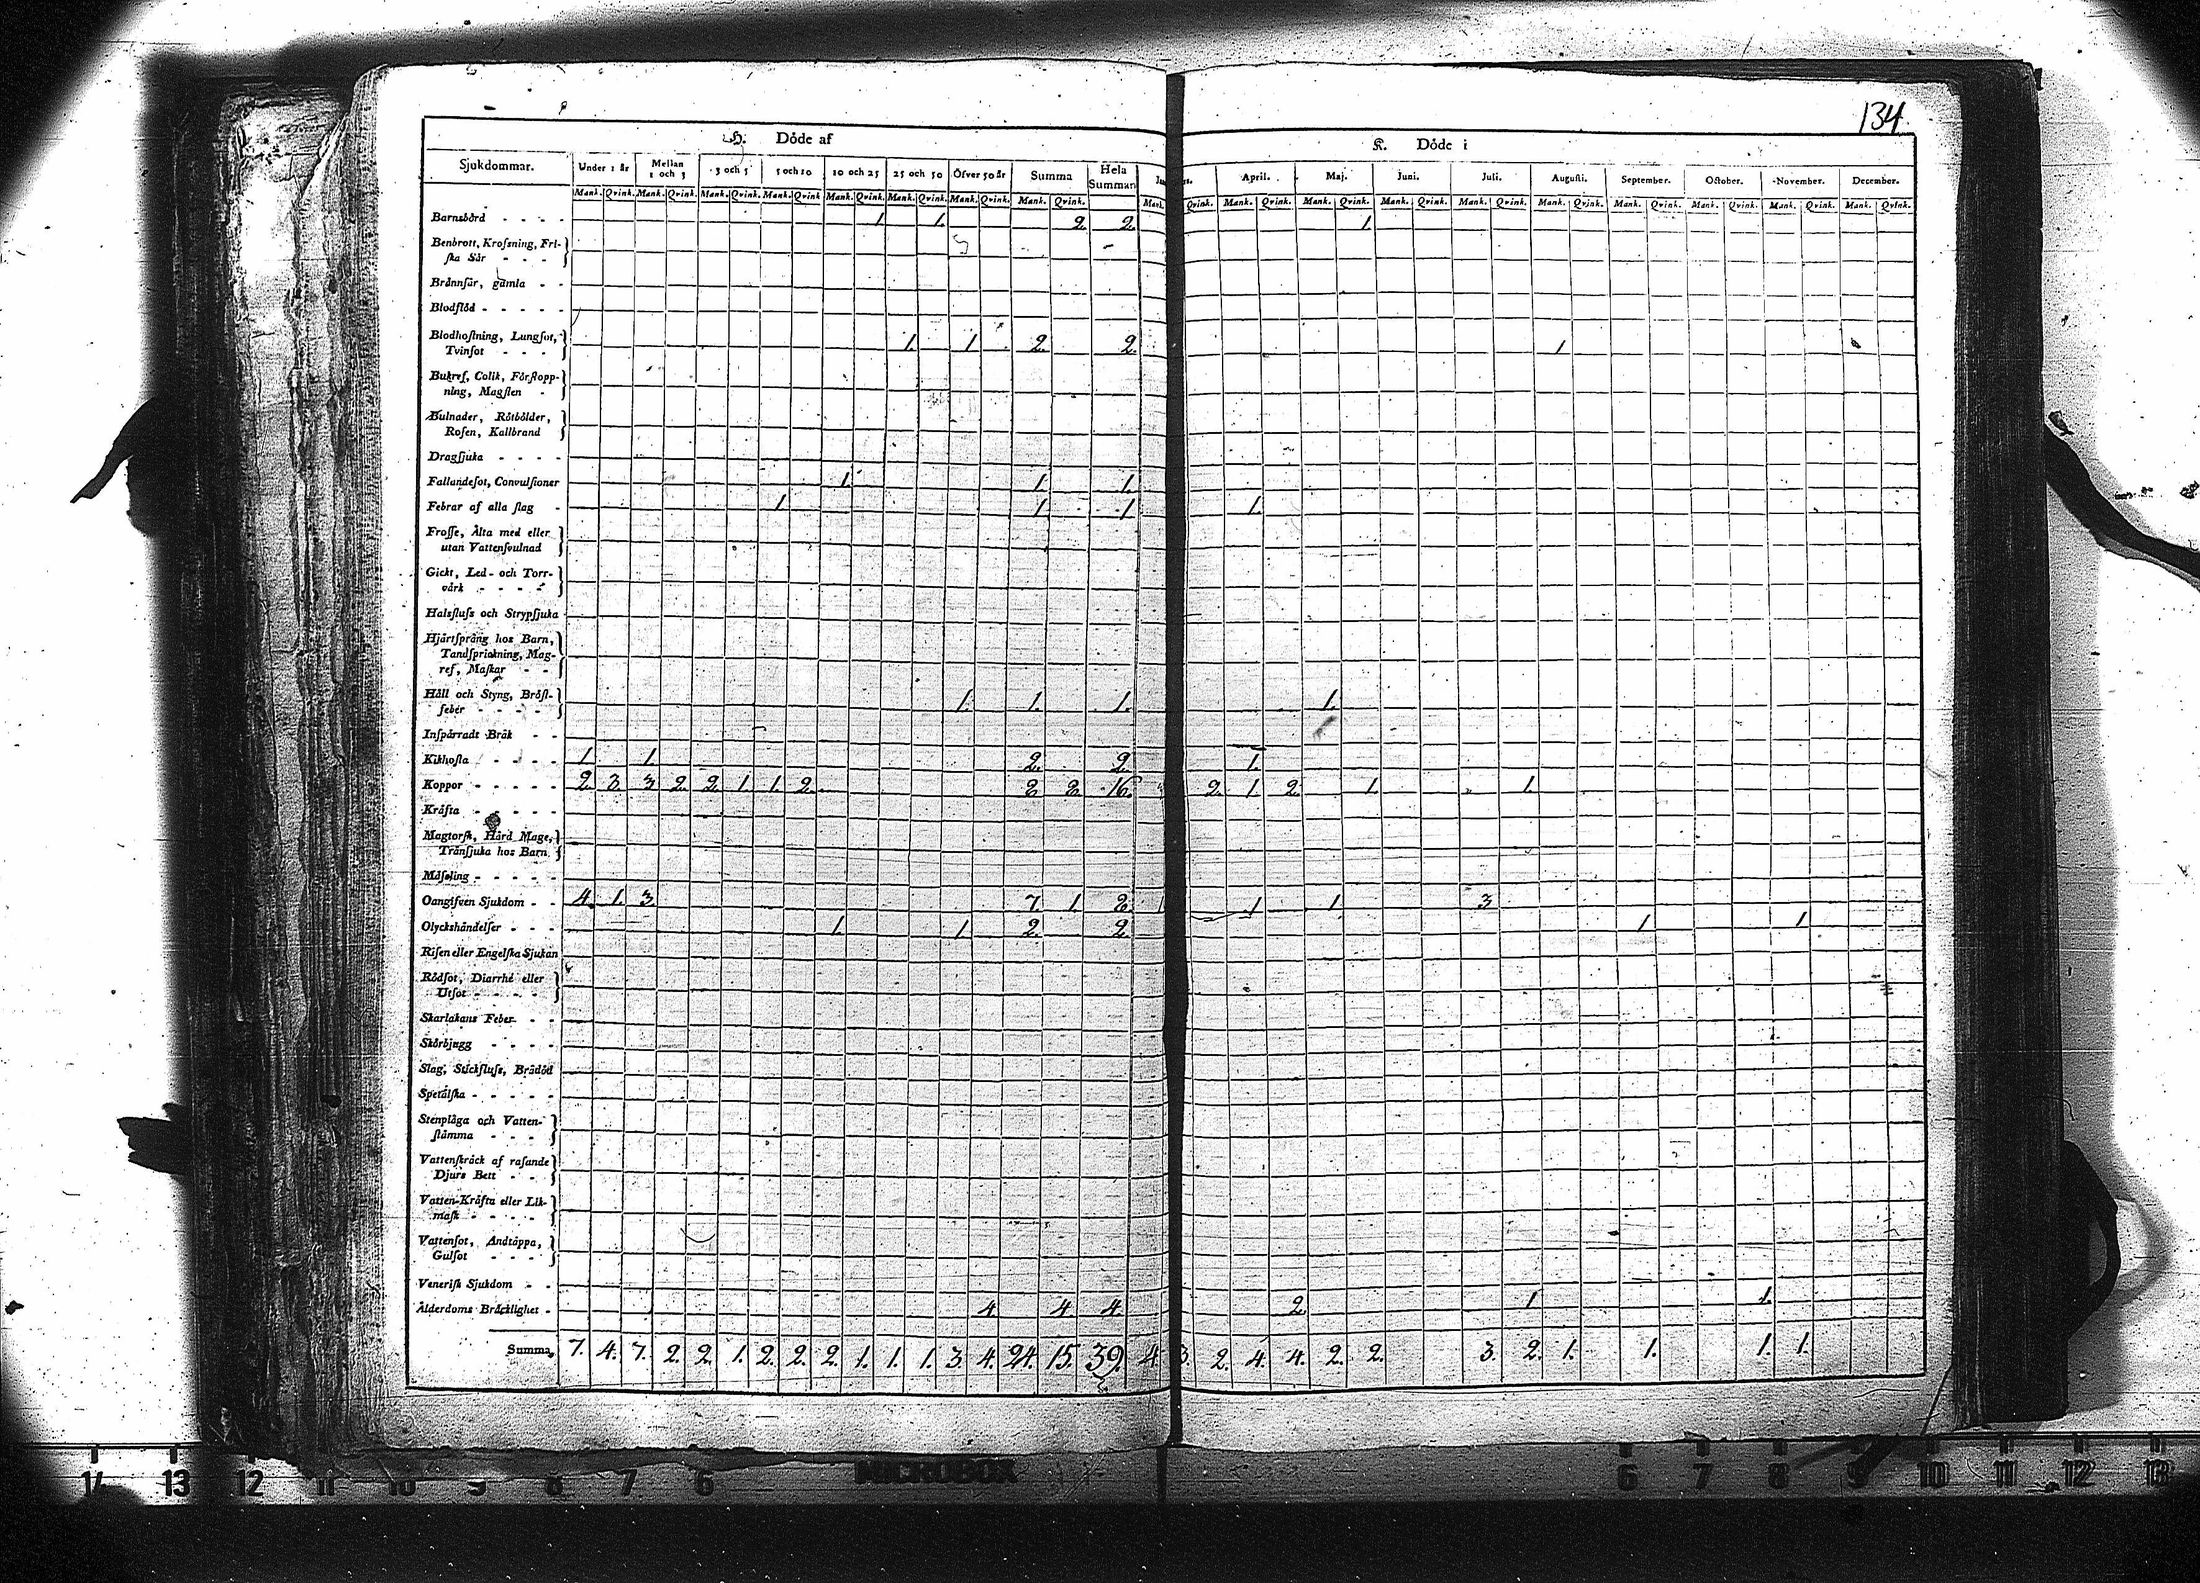 134
H. Döde af
K. Döde i
Sjukdommar. Under 1 år Mellan 1 och 3 3 och 5 5 och 10 10 och 25 25 och 50 Öfver 50 år Summa Hela Summan April. Maj. Juni. Juli. Augusti. September. October. November. December.
Mank. Qvink. Mank. Qvink. Mank. Qvink. Mank. Qvink. Mank. Qvink. Mank. Qvink. Mank. Qvink. Mank. Qvink. Mank. Qvink. Mank. Qvink. Mank. Qvink. Mank. Qvink. Mank. Qvink. Mank. Qvink. Mank. Qvink. Mank. Qvink. Mank. Qvink. Mank. Qvink.
Barnsbörd - - - - 1 1. 2. 2. 1
Benbrott, Krosning, Fri-
ska Sår - - -
Brånnsår, gamla - -
Blodflöd - - - - -
Blodhostning, Lungsot,
Tvinsot - - - 1. 1 2. 2. 1
Bukref, Colik, Förstopp-
ning, Magsten -
Bulnader, Rötbölder,
Rosen, Kallbrand
Dragsjuka - - - -
Fallandesot, Convulsioner 1. 1 1.
Febrar af alla slag - 1 1 1 1.
Frosse, Älta med eller
utan Vattensvulnad
Gickt, Led- och Torr-
värk - - - -
Halsfluss och Strypsjuka
Hjärtsprång hos Barn,
Tandsprickning, Mag-
ref, Maskar - -
Håll och Styng, Bröst-
feber - - - - 1. 1. 1. 1.
Inspärradt Bråk - -
Kikhosta - - - - 1. 1. 2. 2. 1.
Koppor - - - - - 2. 3. 3 2. 2. 1. 1. 2. 16. 2. 1. 2. 1. 1.
Kräfta - - - -
Magtorsk, Hård Mage,
Tränsjuka hos Barn
Mässling - - - - -
Oangifven Sjukdom - - 4. 1. 3. 7 1. 8. 1 1. 3
Olyckshändelser - - - 1. 1. 2. 2. 1 1.
Risen eller Engelska Sjukan
Rödsot, Diarrhé eller
Utsot - - - - -
Skarlakans Feber - -
Skörbjugg - - - -
Slag, Stickfluss, Brådöd
Spetälska - - - - -
Stenplåga och Vatten-
stämma - - -
Vattenskräck af rasande
Djurs Bett - -
Vatten-Kräfta eller Lik-
mask - - - - -
Vattensot, Andtäppa,
Gulsot - - -
Venerisk Sjukdom - -
Ålderdoms Bräcklighet - 4 4 4. 2. 1 1.
Summa 7. 4. 7. 2. 2. 1. 2. 2. 2. 1. 1. 1. 3. 4. 24. 15. 39. 4. 3. 2. 4. 4. 2. 2. 3. 2. 1. 1. 1. 1.
14 13 12 11 10 9 8 7 6 MICROBOX 6 7 8 9 10 11 12 13